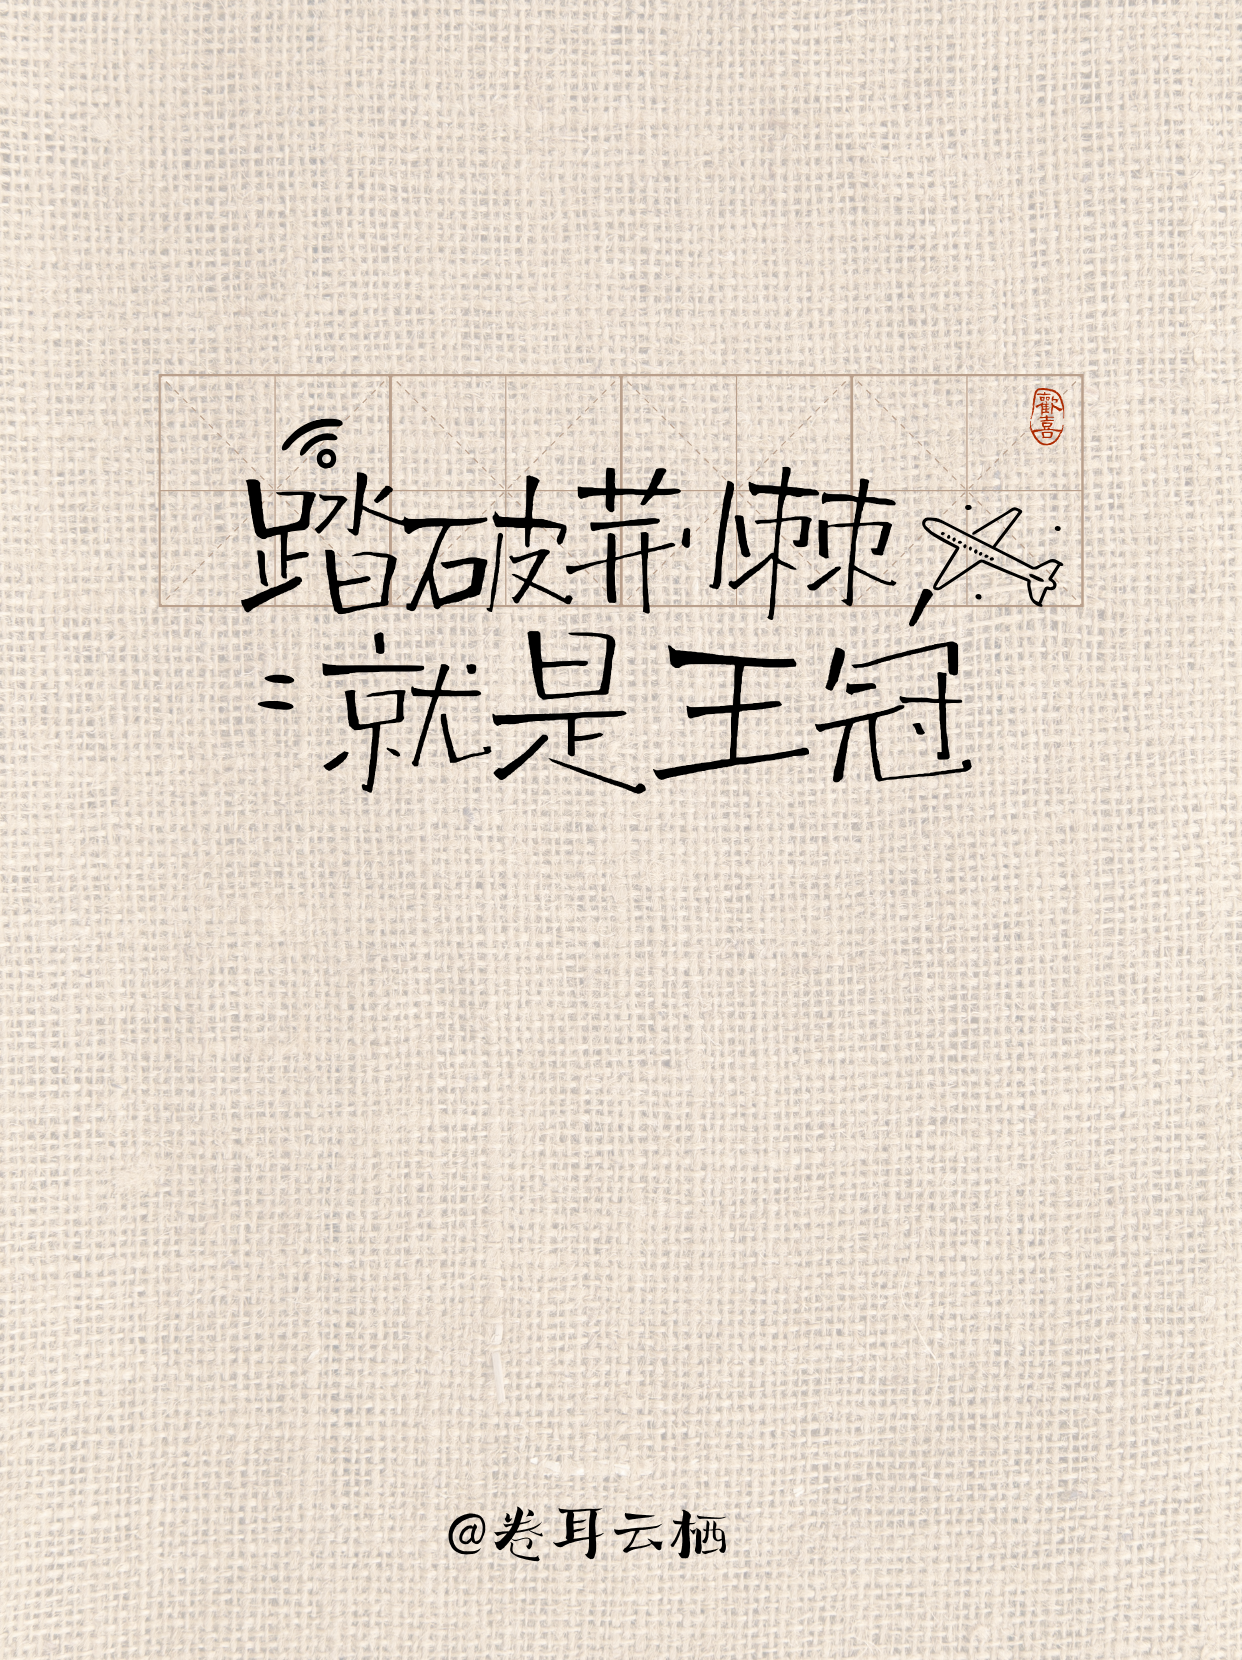 歡喜
踏破荆棘，
就是王冠
@卷耳云栖